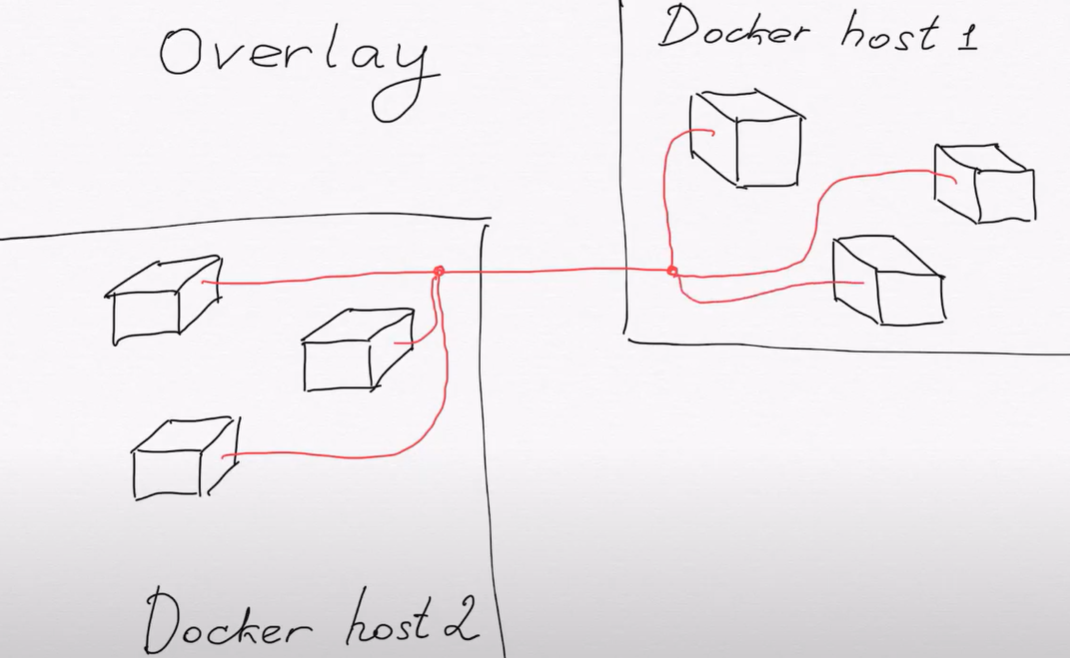 Overlay
Docker host 1
Docker host 2